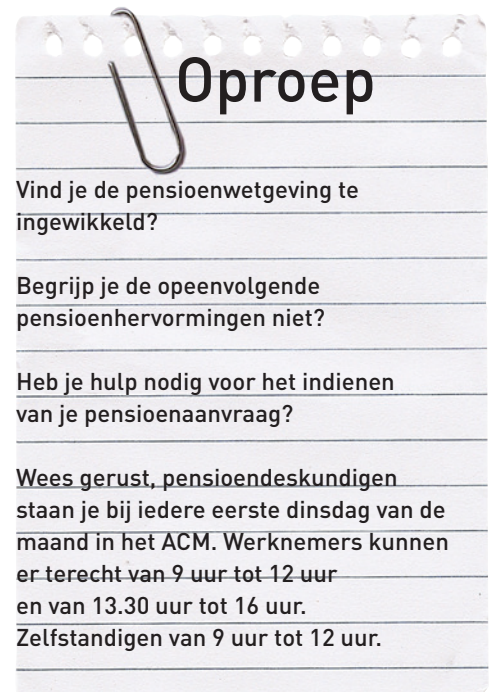 Oproep
Vind je de pensioenwetgeving te
ingewikkeld?
Begrijp je de opeenvolgende
pensioenhervormingen niet?
Heb je hulp nodig voor het indienen
van je pensioenaanvraag?
Wees gerust, pensioendeskundigen
staan je bij iedere eerste dinsdag van de
maand in het ACM. Werknemers kunnen
er terecht van 9 uur tot 12 uur
en van 13.30 uur tot 16 uur.
Zelfstandigen van 9 uur tot 12 uur.